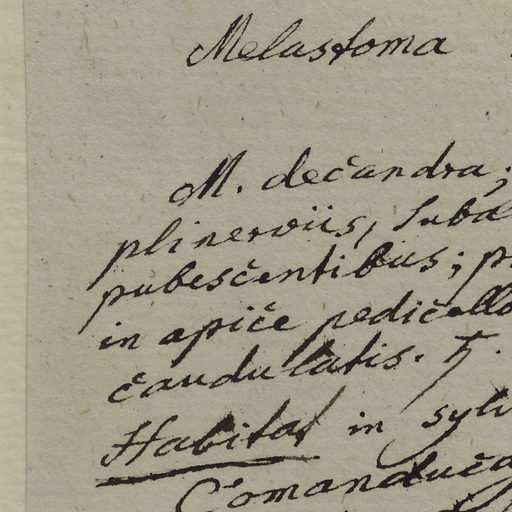 Melastoma
M. decandra;
plinerviis, suba
pubescentibus; p
in apice pedicello
caudulatis. ♄.
Habitat in sylv
Comanduca